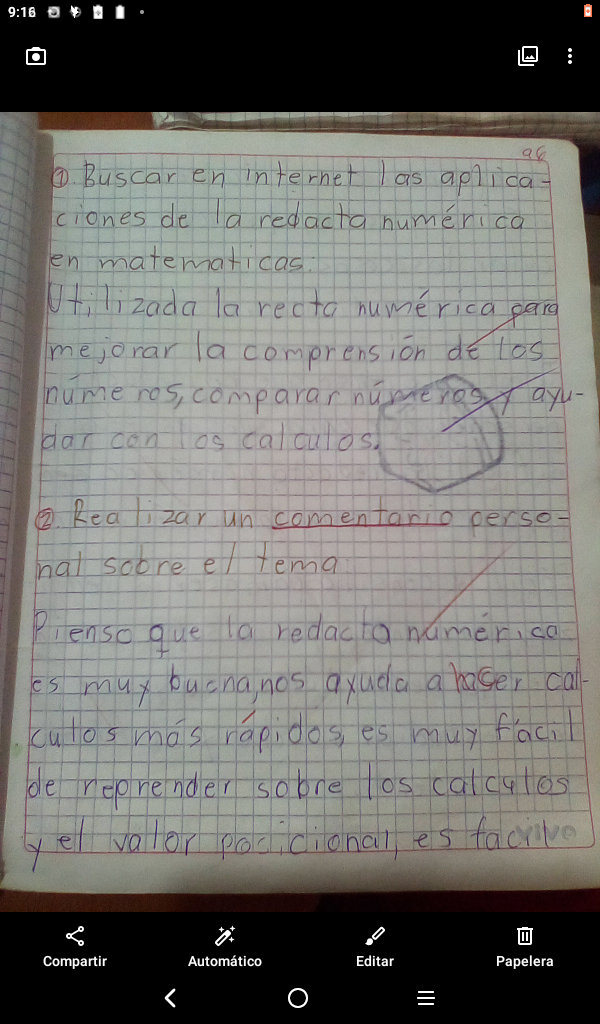 9:16
98
① Buscar en internet las aplica-
ciones de la redacta numérica
en matematicas.
Utilizada la recta numérica para
mejorar la comprensión de los
números, comparar números y ayu-
dar con los calculos.
② Realizar un comentario perso-
nal sobre el tema
Pienso que la redacta numérica
es muy buena, nos ayuda a hacer cal-
culos más rápidos, es muy fácil
de reprender sobre los calculos
y el valor posicional, es
Compartir
Automático
Editar
Papelera